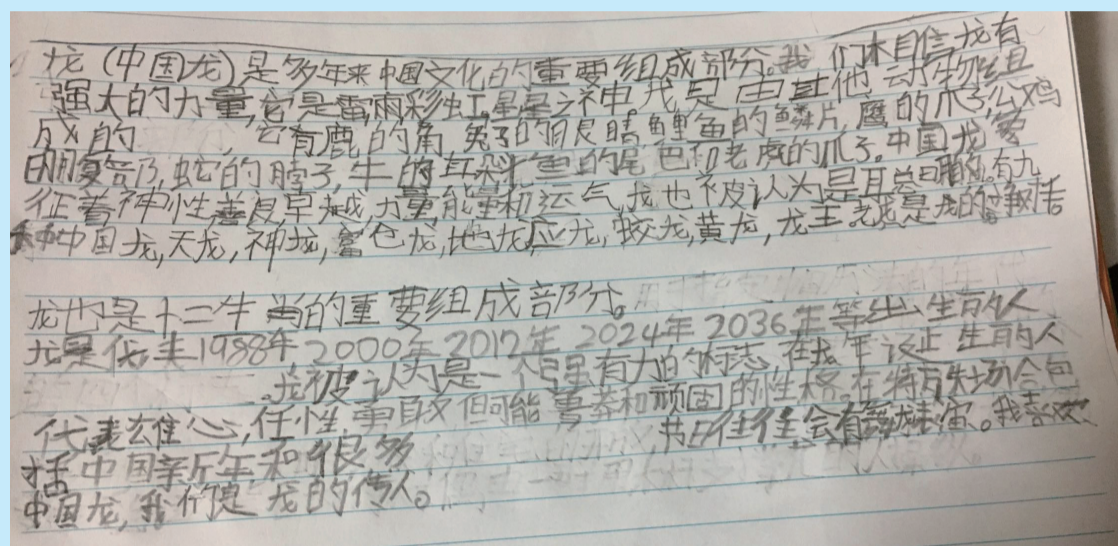 龙(中国龙)是多年来中国文化的重要组成部分。我们相信龙有
强大的力量,它是雷雨彩虹星星之神。龙是由其他动物组
成的,它有鹿的角,兔子的眼睛,鲤鱼的鳞片,鹰的爪子,公鸡
的,蛇的脖子,牛的耳朵,鱼的尾巴和老虎的爪子。中国龙象
征着神性,卓越,力量,能量和运气,龙也被认为是聪明的。有九
中国龙,天龙,神龙,地龙,应龙,蛟龙,黄龙,龙王。
龙也是十二生肖的重要组成部分。
龙是代表1988年2000年2012年2024年2036年等出生的人
龙被认为是一个强有力的标志,在龙年诞生的人
代表雄心,任性,但可能和顽固的性格。在特别场合包
括中国新年和很多节日往往会有舞龙。我喜欢
中国龙,我们是龙的传人。